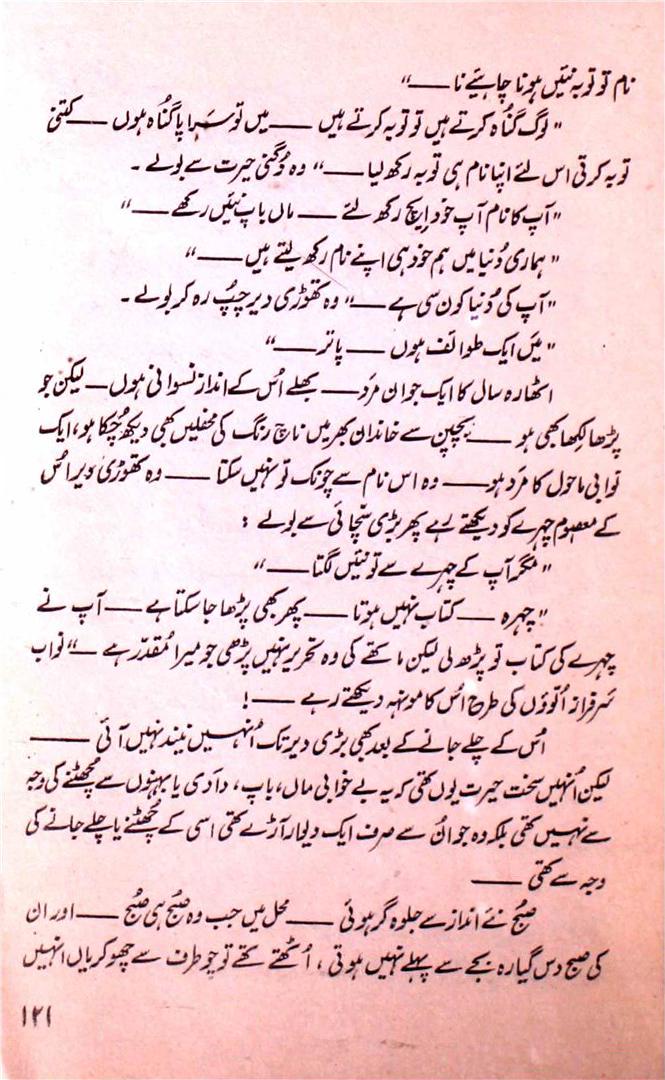 نام تو توبہ نئیں ہونا چاہیئے نا ــــ"
"لوگ گناہ کرتے ہیں تو توبہ کرتے ہیں ــــ میں تو سَرا پا گناہ ہوں ــــ کتنی
توبہ کرتی اس لئے اپنا نام ہی توبہ رکھ لیا ــــ" وہ دُگنی حیرت سے بولے ۔
"آپ کا نام آپ خود اِیچ رکھ لئے ــــ ماں باپ نئیں رکھے ــــ"
"ہماری دُنیا میں ہم خود ہی اپنے نام رکھ لیتے ہیں ــــ"
"آپ کی دُنیا کون سی ہے ــــ" وہ تھوڑی دیر چپُ رہ کر بولے ۔
"میں ایک طوائف ہوں ــــ پاتر ــــ"
اٹھارہ سال کا ایک جوان مرَد ــــ بھلے اُس کے انداز نسوانی ہوں ــ لیکن جو
پڑھا لکھا بھی ہو ــــ بچپن سے خاندان بھر میں ناچ رنگ کی محفلیں بھی دیکھ چُکا ہو، ایک
نوابی ماحول کا مَرد ہو ــــ وہ اس نام سے چونک تو نہیں سکتا ــــ وہ تھوڑی دیر اُس
کے معصوم چہرے کو دیکھتے رہے پھر بڑی سچّائی سے بولے :
"مگر آپ کے چہرے سے تو نئیں لگتا ــــ"
"چہرہ ــــ کتاب نہیں ہوتا ــــ پھر بھی پڑھا جا سکتا ہے ــــ آپ نے
چہرے کی کتاب تو پڑھ لی لیکن ماتھے کی وہ تحریر نہیں پڑھی جو میرا مُقدّر ہے ــ" نواب
سَرفراز اُلّوؤں کی طرح اُس کا مونہہ دیکھتے رہے ــــ!
اُس کے چلے جانے کے بعد بھی بڑی دیر تک اُنہیں نیند نہیں آئی ــــ
لیکن اُنہیں سخت حیرت یوں تھی کہ یہ بے خوابی ماں، باپ، دادی یا بہنوں سے چُھٹنے کی وجہ
سے نہیں تھی بلکہ وہ جو اُن سے صرف ایک دیوار آڑے تھی اسی کے چُھٹنے یا چلے جانے کی
وجہ سے تھی ــــ
صُبح نئے انداز سے جلوہ گر ہوئی ــــ محل میں جب وہ صُبح ہی صُبح ــــ اور ان
کی صبح دس گیارہ بجے سے پہلے نہیں ہوتی، اُٹھتے تھے تو چو طرف سے چھوکریاں انہیں
۱۲۱